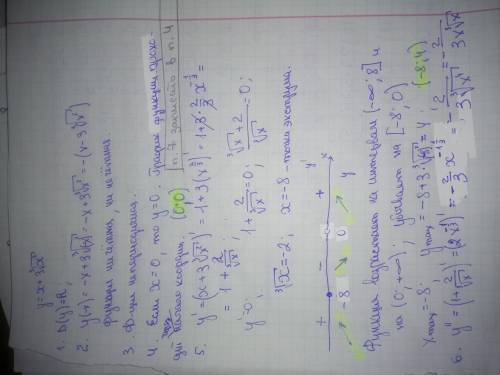 y = x + 3∛x²
1. D(y) = R,
2. y(-x) = -x + 3∛(-x)² = -x + 3∛x² = -(x - 3∛x²)
функция ни чётная, ни нечётная.
3. Ф-ция непериодична.
4. Если x = 0, то y = 0. График функции прохо-
дит начало коорд. (0;0) п. 7 записать в п. 4
5. y' = (x + 3∛x²)' = 1 + 3(x^(2/3))' = 1 + 3·2/3 x^(-1/3) =
= 1 + 2/∛x
y' = 0; 1 + 2/∛x = 0; (∛x + 2)/∛x = 0;
∛x = -2; x = -8 - точка экструма.
+ - + y'
-8 0 y x
Функция возрастает на интервалах (-∞; 8] и
на (0; +∞); убывает на [-8; 0)
x max = -8. y max = -8 + 3·∛(-8)² = 4 (-8; 4)
6. y'' = (1 + 2/∛x)' = (2x^(-1/3))' = -2/3 x